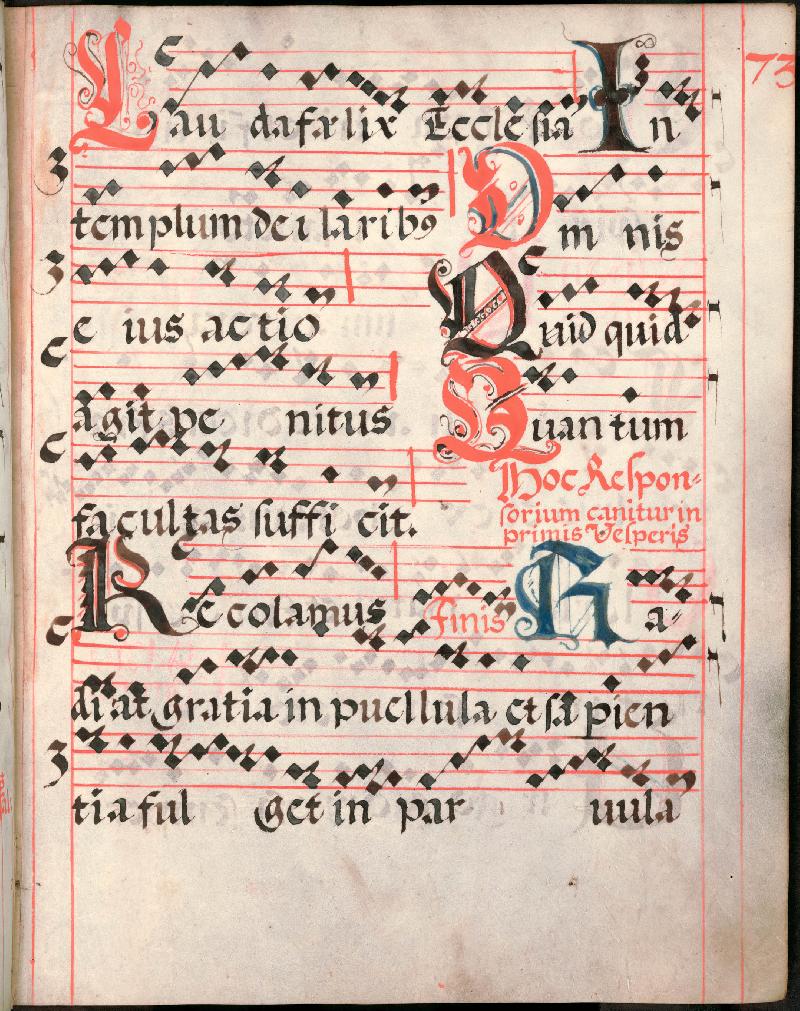 73
Lau da fælix Ecclesia In
templum dei laribꝯ Om nis
e ius actio Quid quid
agit pe nitus Quantum
facultas suffi cit.
Hoc Respon-
sorium canitur in
primis Vesperis
Recolamus Finis Ra-
di at gratia in puellula et sa pien
tia ful get in par uula